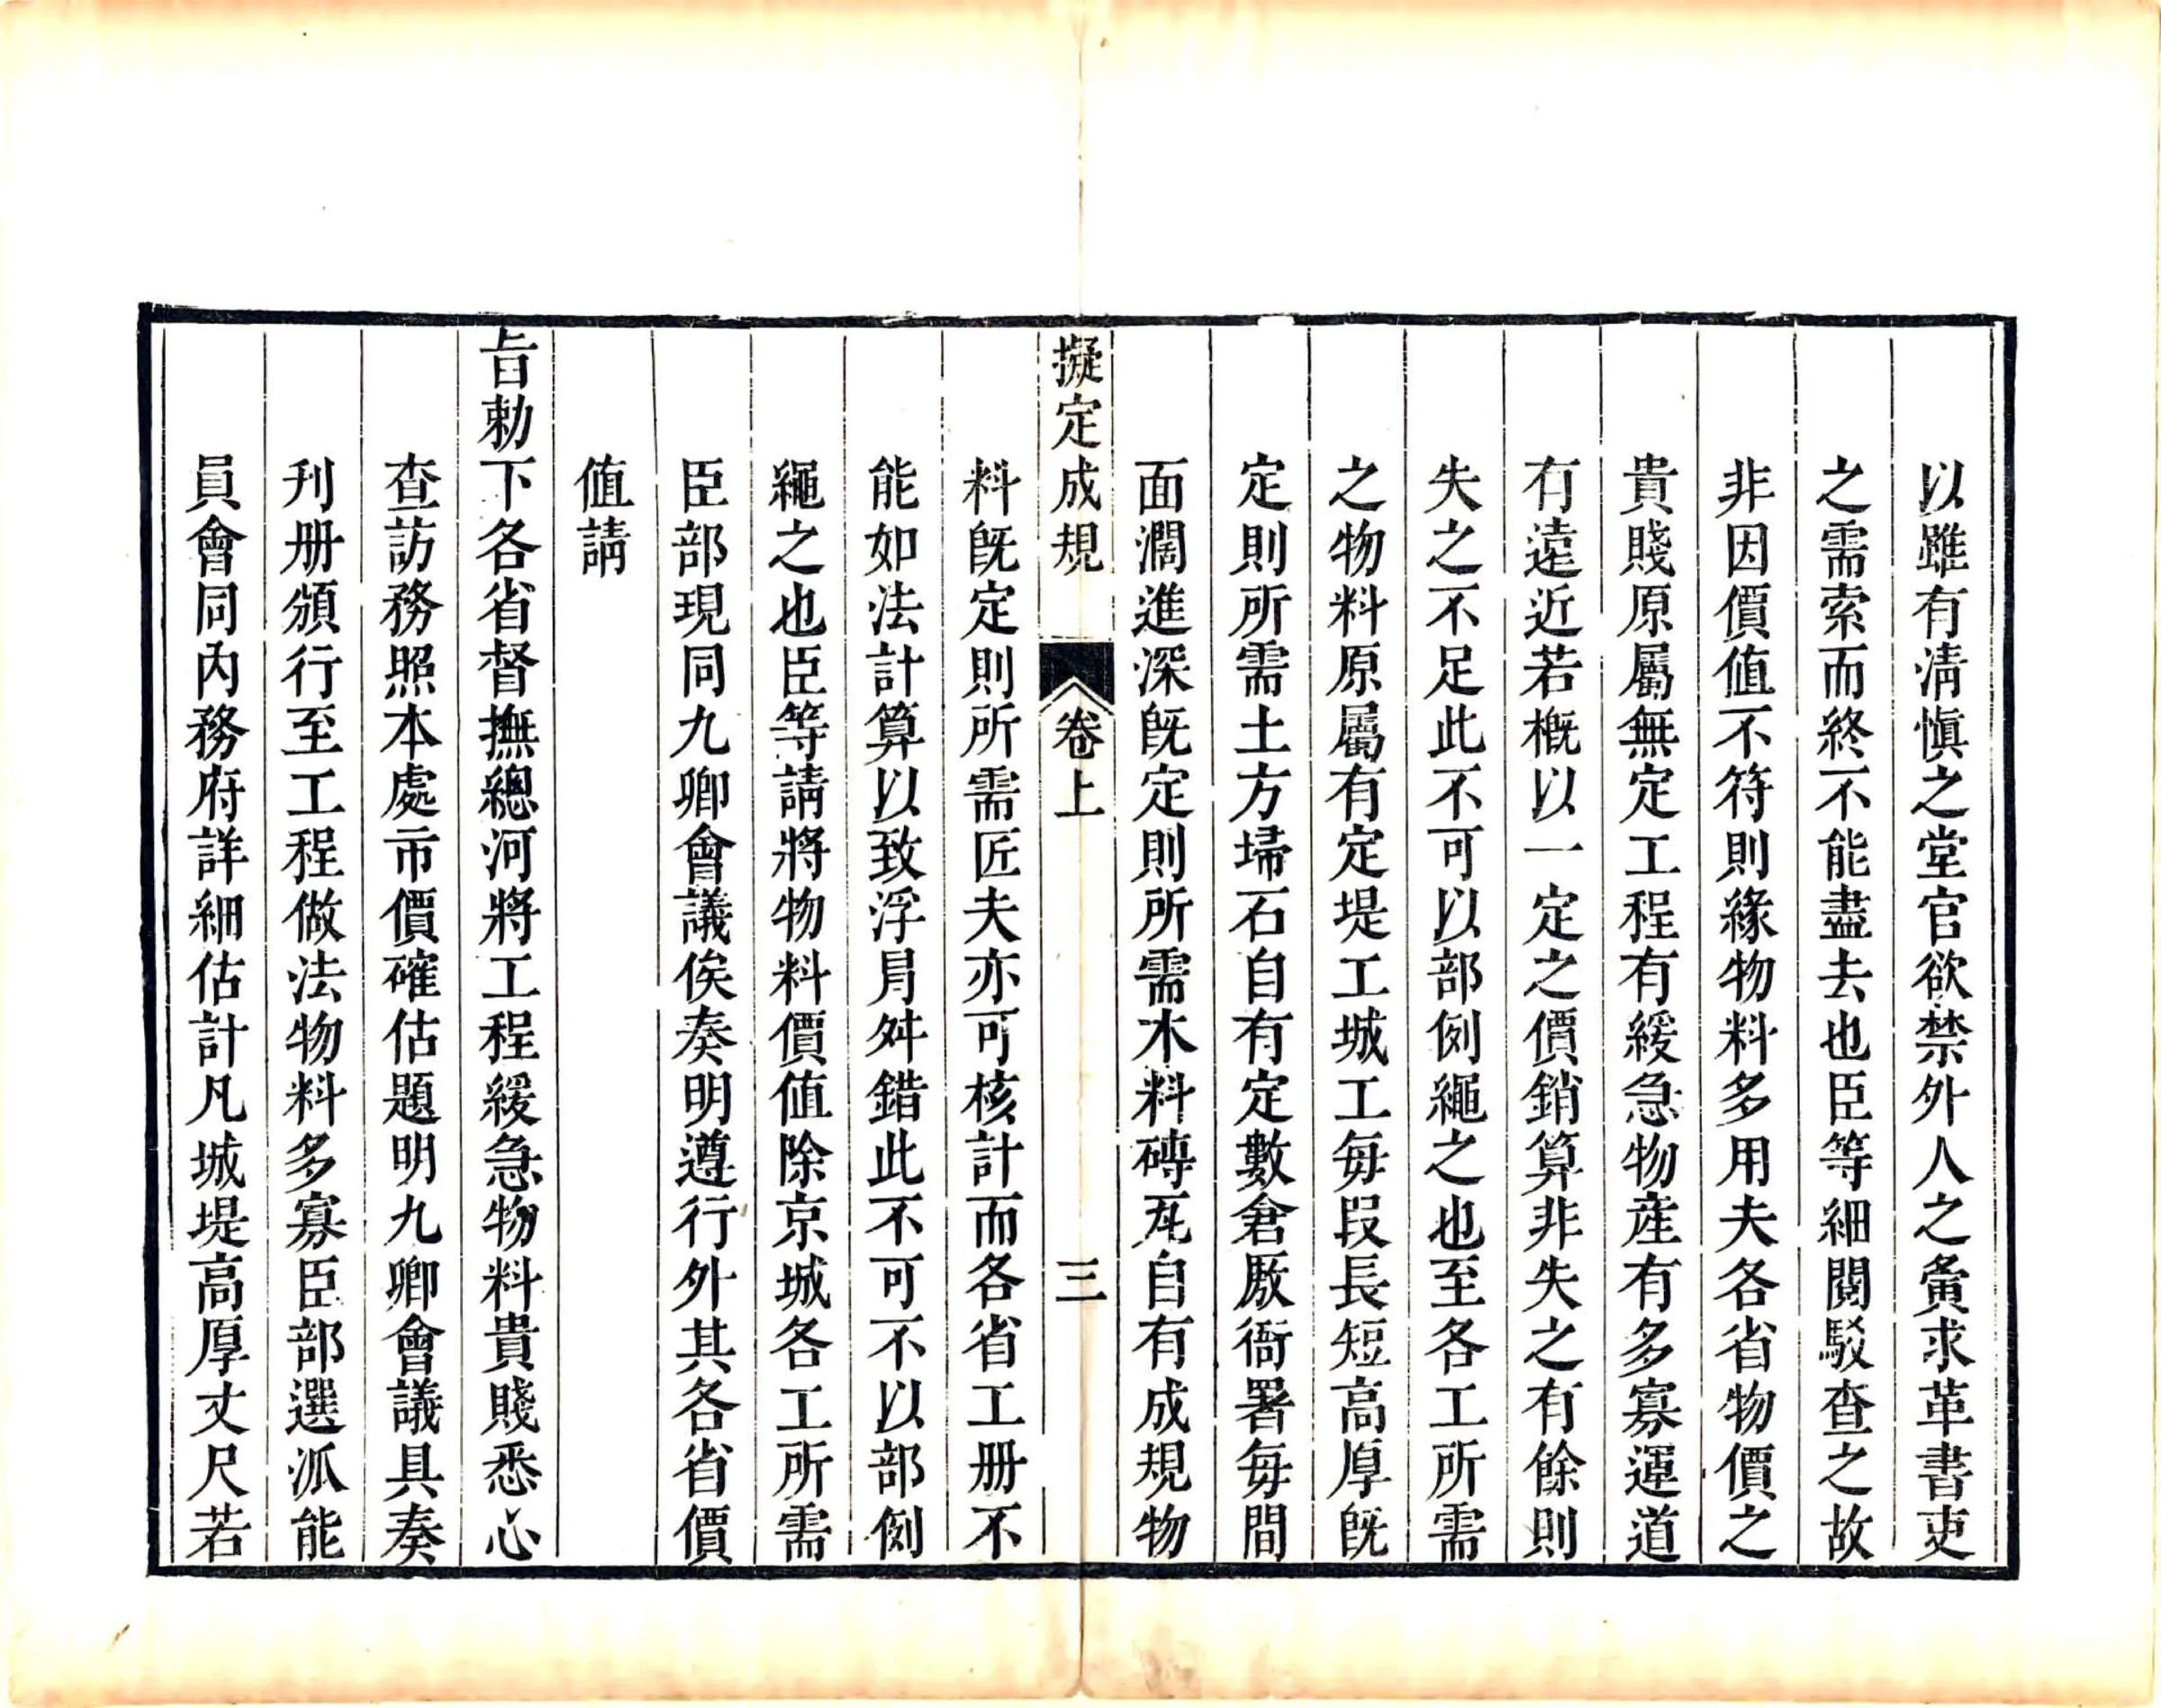 以雖有清愼之堂官欲禁外人之夤求革書吏
之需索而終不能盡去也臣等細閱駁查之故
非因價值不符則緣物料多用夫各省物價之
貴賤原屬無定工程有緩急物產有多寡運道
有遠近若概以一定之價銷算非失之有餘則
失之不足此不可以部例繩之也至各工所需
之物料原屬有定堤工城工每段長短高厚旣
定則所需土方埽石自有定數倉厫衙署每間
面濶進深旣定則所需木料磚瓦自有成規物
擬定成規 卷上 三
料旣定則所需匠夫亦可核計而各省工册不
能如法計算以致浮冐舛錯此不可不以部例
繩之也臣等請將物料價值除京城各工所需
臣部現同九卿會議俟奏明遵行外其各省價
值請
旨勅下各省督撫總河將工程緩急物料貴賤悉心
查訪務照本處市價確估題明九卿會議具奏
刋册頒行至工程做法物料多寡臣部選派能
員會同內務府詳細估計凡城堤高厚丈尺若